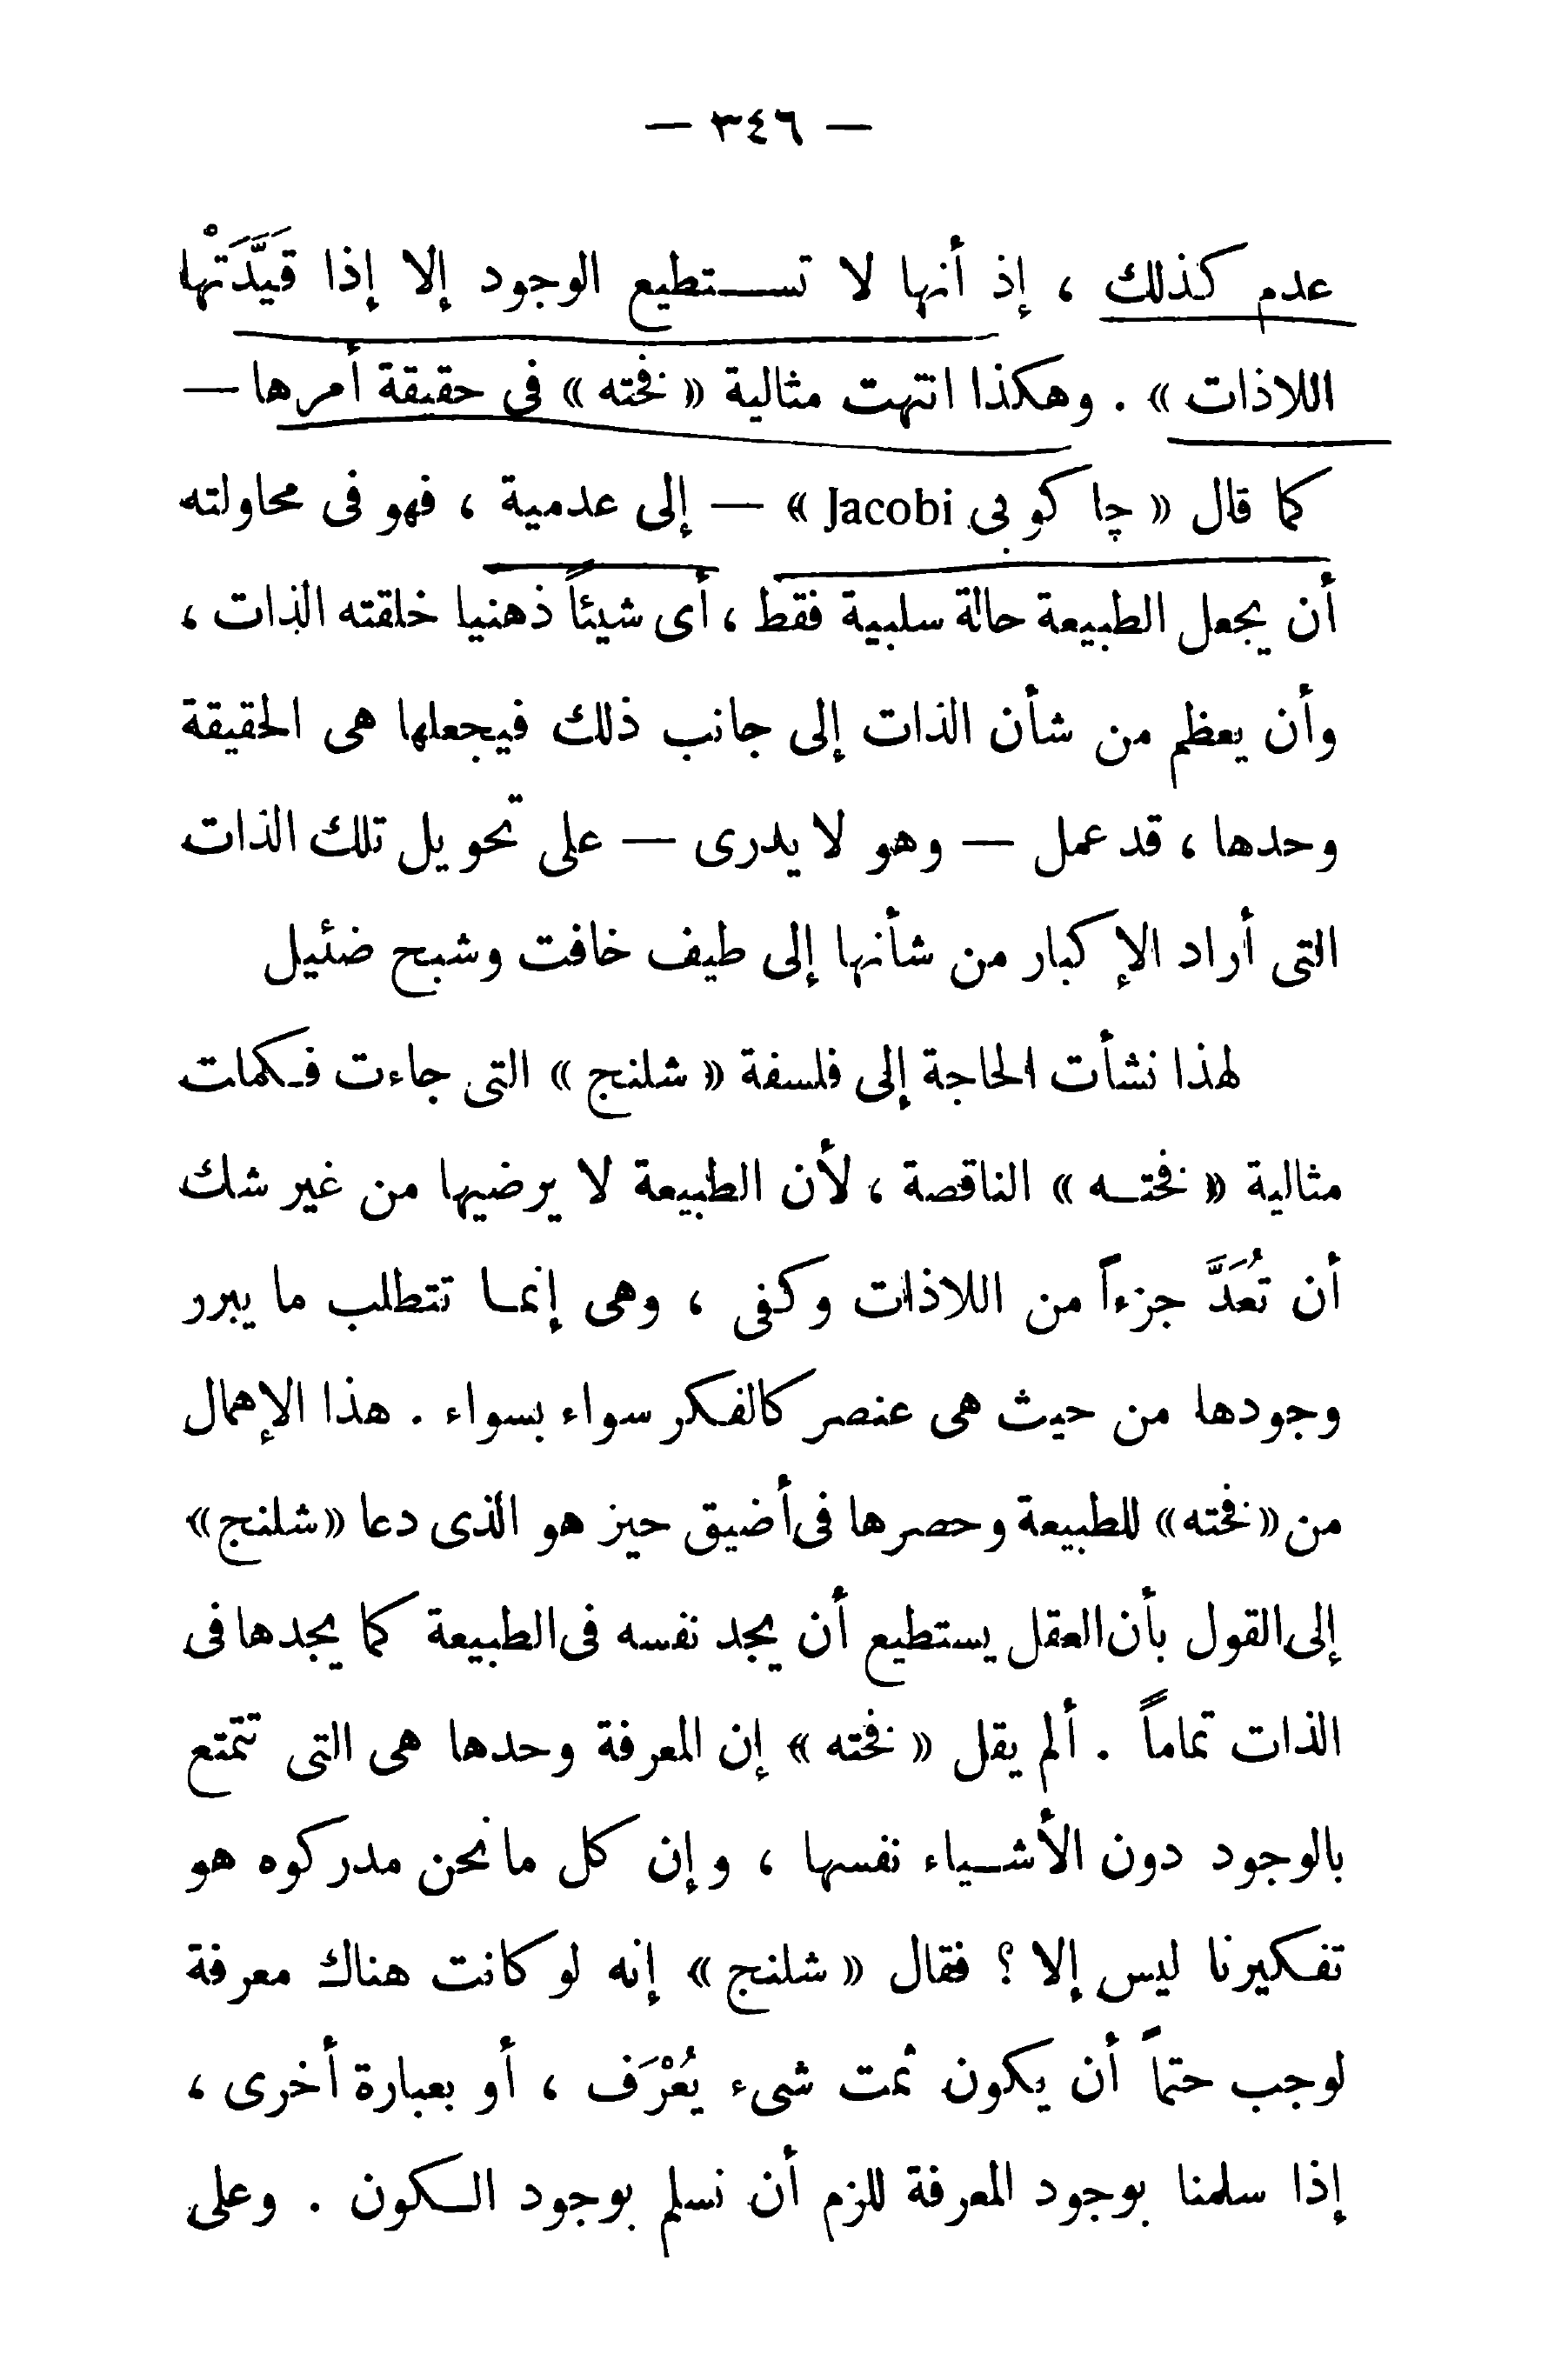 — ٣٤٦ —
عدم كذلك ، إذ أنها لا تستطيع الوجود إلا إذا قَيَّدَتْها
اللاذات » . وهكذا انتهت مثالية « فخته » فى حقيقة أمرها —
كما قال « چاكوبى Jacobi » — إلى عدمية ، فهو فى محاولته
أن يجعل الطبيعة حالة سلبية فقط ، أى شيئاً ذهنيا خلقته الذات ،
وأن يعظم من شأن الذات إلى جانب ذلك فيجعلها هى الحقيقة
وحدها ، قد عمل — وهو لا يدرى — على تحويل تلك الذات
التى أراد الإكبار من شأنها إلى طيف خافت وشبح ضئيل
لهذا نشأت الحاجة إلى فلسفة « شلنج » التى جاءت فكملت
مثالية « فخته » الناقصة ، لأن الطبيعة لا يرضيها من غير شك
أن تُعَدَّ جزءاً من اللاذات وكفى ، وهى إنما تتطلب ما يبرر
وجودها من حيث هى عنصر كالفكر سواء بسواء . هذا الإهمال
من « فخته » للطبيعة وحصرها فى أضيق حيز هو الذى دعا « شلنج »
إلى القول بأن العقل يستطيع أن يجد نفسه فى الطبيعة كما يجدها فى
الذات تماماً . ألم يقل « فخته » إن المعرفة وحدها هى التى تتمتع
بالوجود دون الأشياء نفسها ، وإن كل ما نحن مدركوه هو
تفكيرنا ليس إلا ؟ فقال « شلنج » إنه لو كانت هناك معرفة
لوجب حتماً أن يكون ثمت شىء يُعْرَف ، أو بعبارة أخرى ،
إذا سلمنا بوجود المعرفة للزم أن نسلم بوجود الكون . وعلى